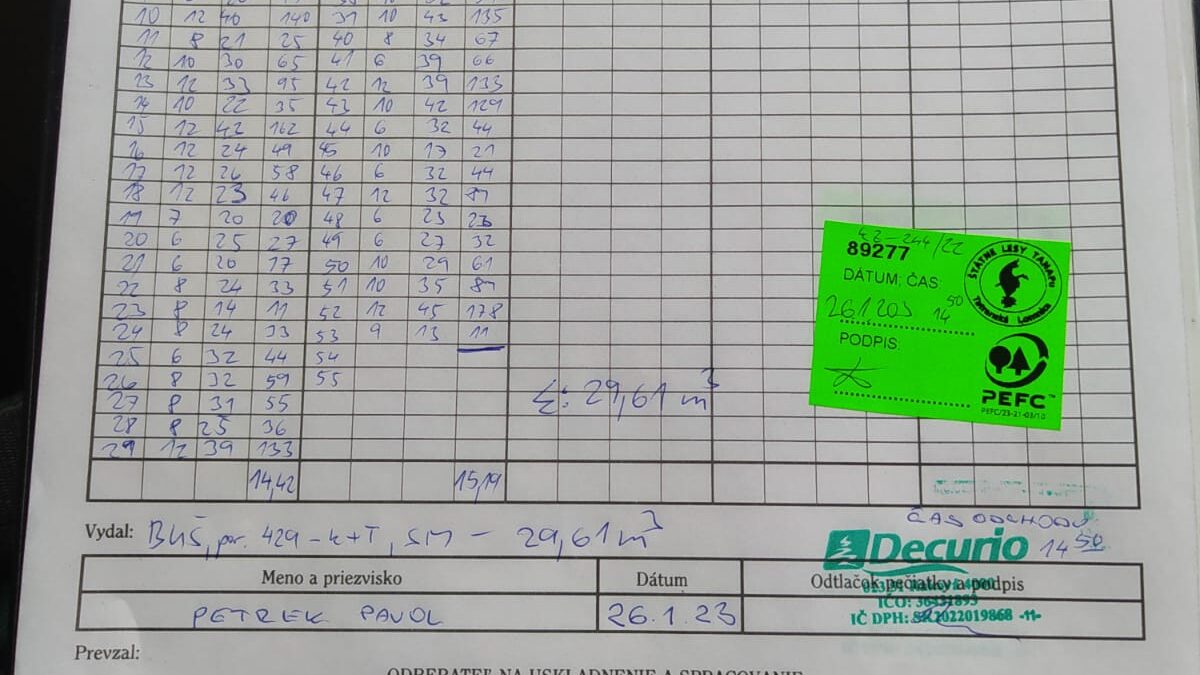 10 12 40 140 31 10 43 135
11 8 21 25 40 8 34 67
12 10 30 65 41 6 39 66
13 12 33 95 42 12 39 133
14 10 22 35 43 10 42 129
15 12 42 162 44 6 32 44
16 12 24 49 45 10 17 21
17 12 26 58 46 6 32 44
18 12 23 46 47 12 32
19 7 20 20 48 6 23 23
20 6 25 27 49 6 27 32
21 6 20 17 50 10 29 61
22 8 24 33 51 10 35
23 8 14 11 52 12 45 178
24 8 24 33 53 9 13 11
25 6 32 44 54
26 8 32 59 55
27 8 31 55
28 8 25 36
29 12 39 133
Σ: 29,61 m³
14,42 15,19
42-244/22
89277
DÁTUM, ČAS:
26.1.203 14 50
PODPIS:
ŠTÁTNE LESY TANAPu
Tatranská Lomnica
PEFC™
PEFC/23-21-03/10
ČAS ODCHODU
14 50
Vydal: BUŠ, por. 429 - k+T, SM - 29,61 m³
Decurio
Meno a priezvisko Dátum Odtlačok pečiatky a podpis
IČO: 36431893
PETREK PAVOL 26.1.23
IČ DPH: SK2022019868 -11-
Prevzal:
ODBERATEĽ NA USKLADNENIE A SPRACOVANIE